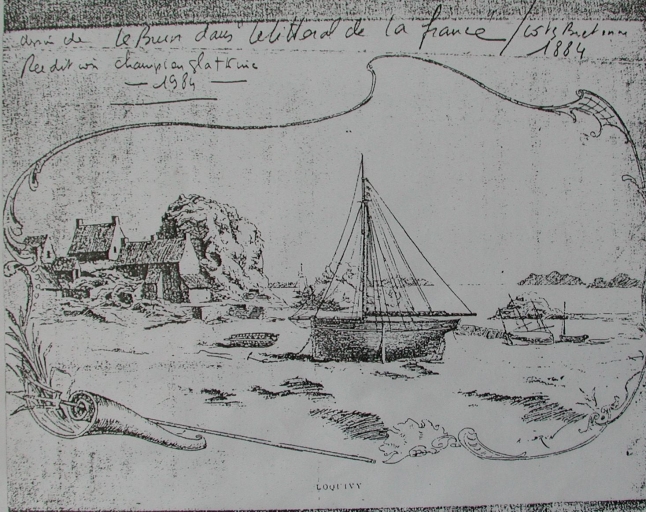 dessin de Le Brun dans "le littoral de la france" / Cote Bretonne
1884
Reedition champion slatkine
— 1984 —
LOQUIVY